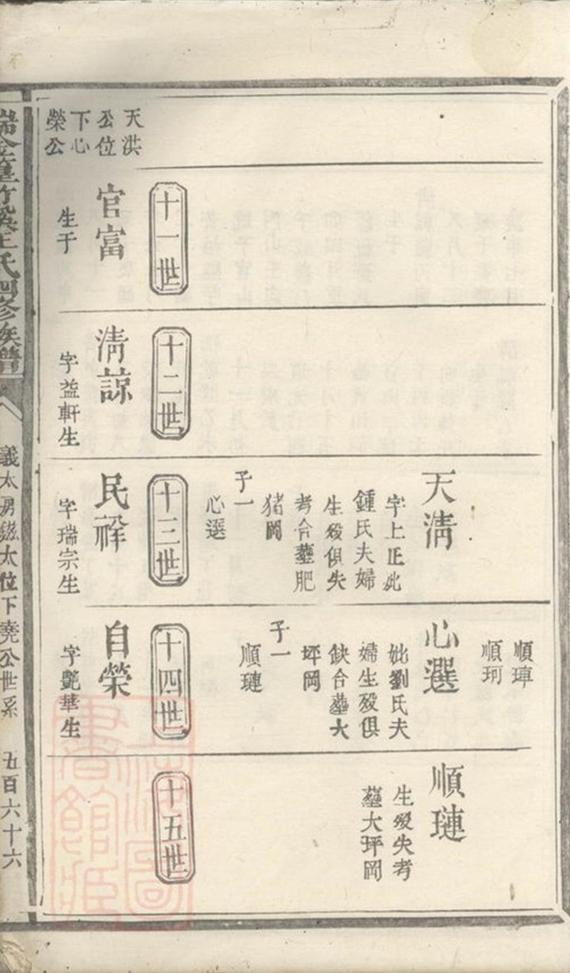 天淸
字上正妣
鍾氏夫婦
生歿俱失
考合塟肥
猪岡
子一
心選
順琿
順珂
心選
妣劉氏夫
婦生歿俱
缺合塟大
坪岡
子一
順璉
順璉
生歿失考
塟大坪岡
天洪
公位
下心
榮公
十一世
官富
生于
十二世
淸諒
字益軒生
十三世
民祥
字瑞宗生
十四世
自榮
字艷華生
十五世
瑞金篁竹 王氏四修族譜
義太房鎡太位下堯公世系
五百六十六
上海圖書館藏